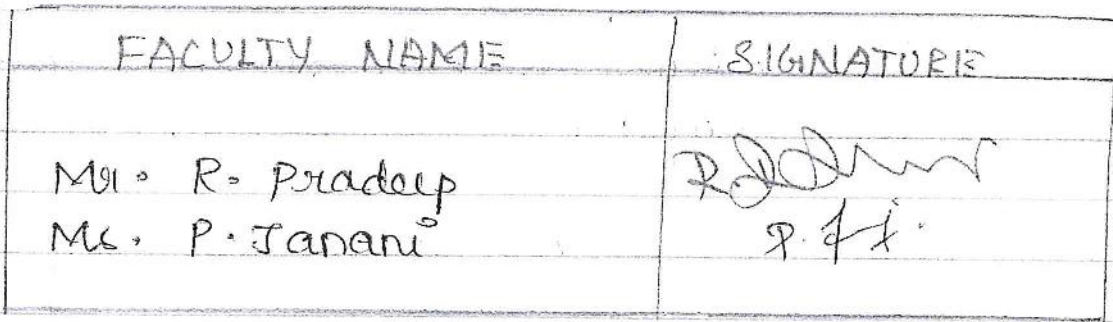 FACULTY NAME SIGNATURE
Mr. R. Pradeep
Ms. P. Janani